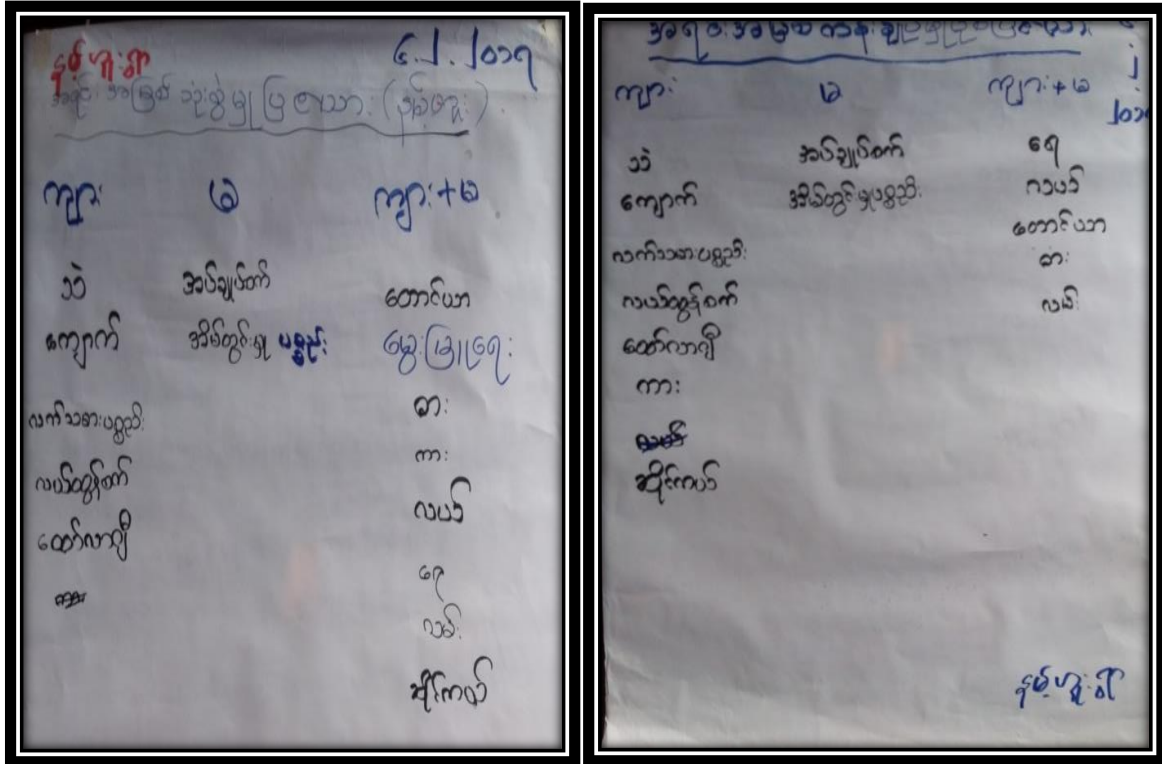 နမ့်ဟူးရွာ ၆.၂.၂၀၁၇
အရင်း အမြစ် သုံးစွဲမှု ပြ ဇယား (နမ့်ဟူး)
ကျား မ ကျား+မ
သဲ အပ်ချုပ်စက် တောင်ယာ
ကျောက် အိမ်တွင်းမှု ပစ္စည်း မွေးမြူရေး
လက်သမားပစ္စည်း ဓား
လယ်ထွန်စက် ကား
ထော်လာဂျီ လယ်
ရေ
လမ်း
ဆိုင်ကယ်
အရင်းအမြစ် ထိန်းချုပ်မှုပြဇယား
ကျား မ ကျား+မ
သဲ အပ်ချုပ်စက် ရေ
ကျောက် အိမ်တွင်းမှုပစ္စည်း လယ်
တောင်ယာ
လက်သမားပစ္စည်း ဓား
လယ်ထွန်စက် လမ်း
ထော်လာဂျီ
ကား
ဆိုင်ကယ်
နမ့်ဟူးရွာ